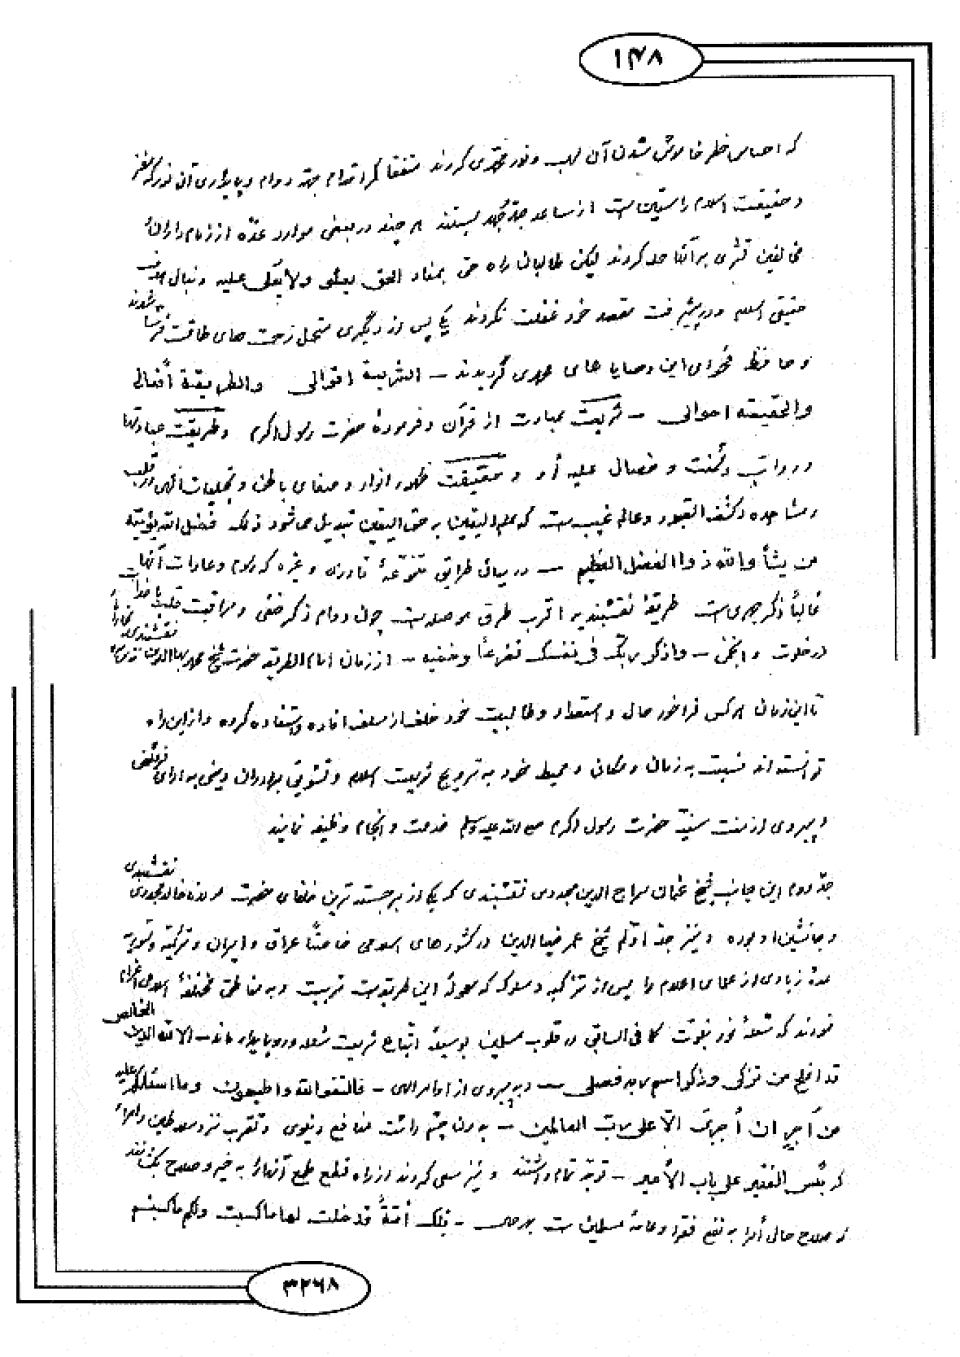 ۱۴۸
که احساس خطر خاموش شدن آن لهب و نور محمدی کردند متفقا کمر اقدام جهة دوام و پایداری آن نور که مغز
و حقیقت اسلام راستین است از ساعد جد و جهد بستند هر چند در بعضی موارد عدّه از زمام داران و
مخالفین قشری بر آنها حمله کردند لیکن طالبان راه حق بمفاد الحق یعلو ولا یعلی علیه دنبال اهداف
حقیقی اسلام و در پیشرفت مقصد خود غفلت نکردند یکی پس از دیگری متحمل زحمت های طاقت فرسا شدند
و حافظ فحوای این وصایا های محمدی گردیدند – الشریعة اقوالی والطریقة أفعالی
والحقیقة احوالی – شریعت عبارت از قرآن و فرمودهٔ حضرت رسول اکرم و طریقت عبادتها
و رواتب و سنت و خصال علیه او و حقیقت ظهور انوار و صفای باطن و تجلیات الهی در قلب
و مشاهده و کشف القبور و عالم غیب است که علم الیقین به حق الیقین تبدیل می شود ذلک فضل الله یؤتیه
من یشأ والله ذو الفضل العظیم – در میان طرائق متنوعهٔ قادری و غیره که رسوم و عادات آنها
غالباً ذکر جهری است طریقهٔ نقشبندیه اقرب طرق موصله است چون دوام ذکر خفی و مراقبت قلب با خداست
در خلوت و انجمن – واذکر ربک فی نفسک تضرعاً وخفیه – از زمان امام الطریقه حضرت شیخ محمد بهاالدین نقشبندی بخارا
تا این زمان هر کس فراخور حال و استعداد و طالبیت خود خلف از سلف افاده و استفاده کرده و از این راه
توانسته اند نسبت به زمان و مکان و محیط خود به ترویج شریعت اسلام و تشویق برادران دینی به ادای فرائض
و پیروی از سنت سنیّه حضرت رسول اکرم صلی الله علیه وسلم خدمت و انجام وظیفه نمایند
جد دوم این جانب شیخ عثمان سراج الدین مجددی نقشبندی که یکی از برجسته ترین خلفای حضرت مولانا خالد مجددی نقشبندی
و جانشین او بوده و نیز جد اولم شیخ عمر ضیاالدین در کشورهای اسلامی خاصتاً عراق و ایران و ترکیه و سوریه
عدهٔ زیادی از علمای اعلام را پس از تزکیه و سلوک که معمولهٔ این طریقه است تربیت و به مناطق مختلفهٔ اسلامی اعزام
نمودند که شعلهٔ نور نبوّت کما فی السابق در قلوب مسلمین بوسیلهٔ اتباع شریعت شعله ور و پایدار ماند – الا لله الدین الخالص
قد افلح من تزکی وذکر اسم ربه فصلی – و به پیروی از اوامر الهی – فاتقوا الله واطیعون وما اسئلکم علیه
من أجر ان أجری الا علی رب العالمین – به بدون چشم داشت منافع دنیوی و تقرب نزد سلاطین و امراء
که بئس الفقیر علی باب الأمیر – توجه تمام داشتند و نیز سعی کردند از راه قطع طمع آنها را به خیر و صلاح بکشانند
که صلاح حال أمرا به نفع فقرا و عامهٔ مسلمین است – تلک أمّةٌ قد خلت لها ما کسبت ولکم ما کسبتم
۳۲۶۸